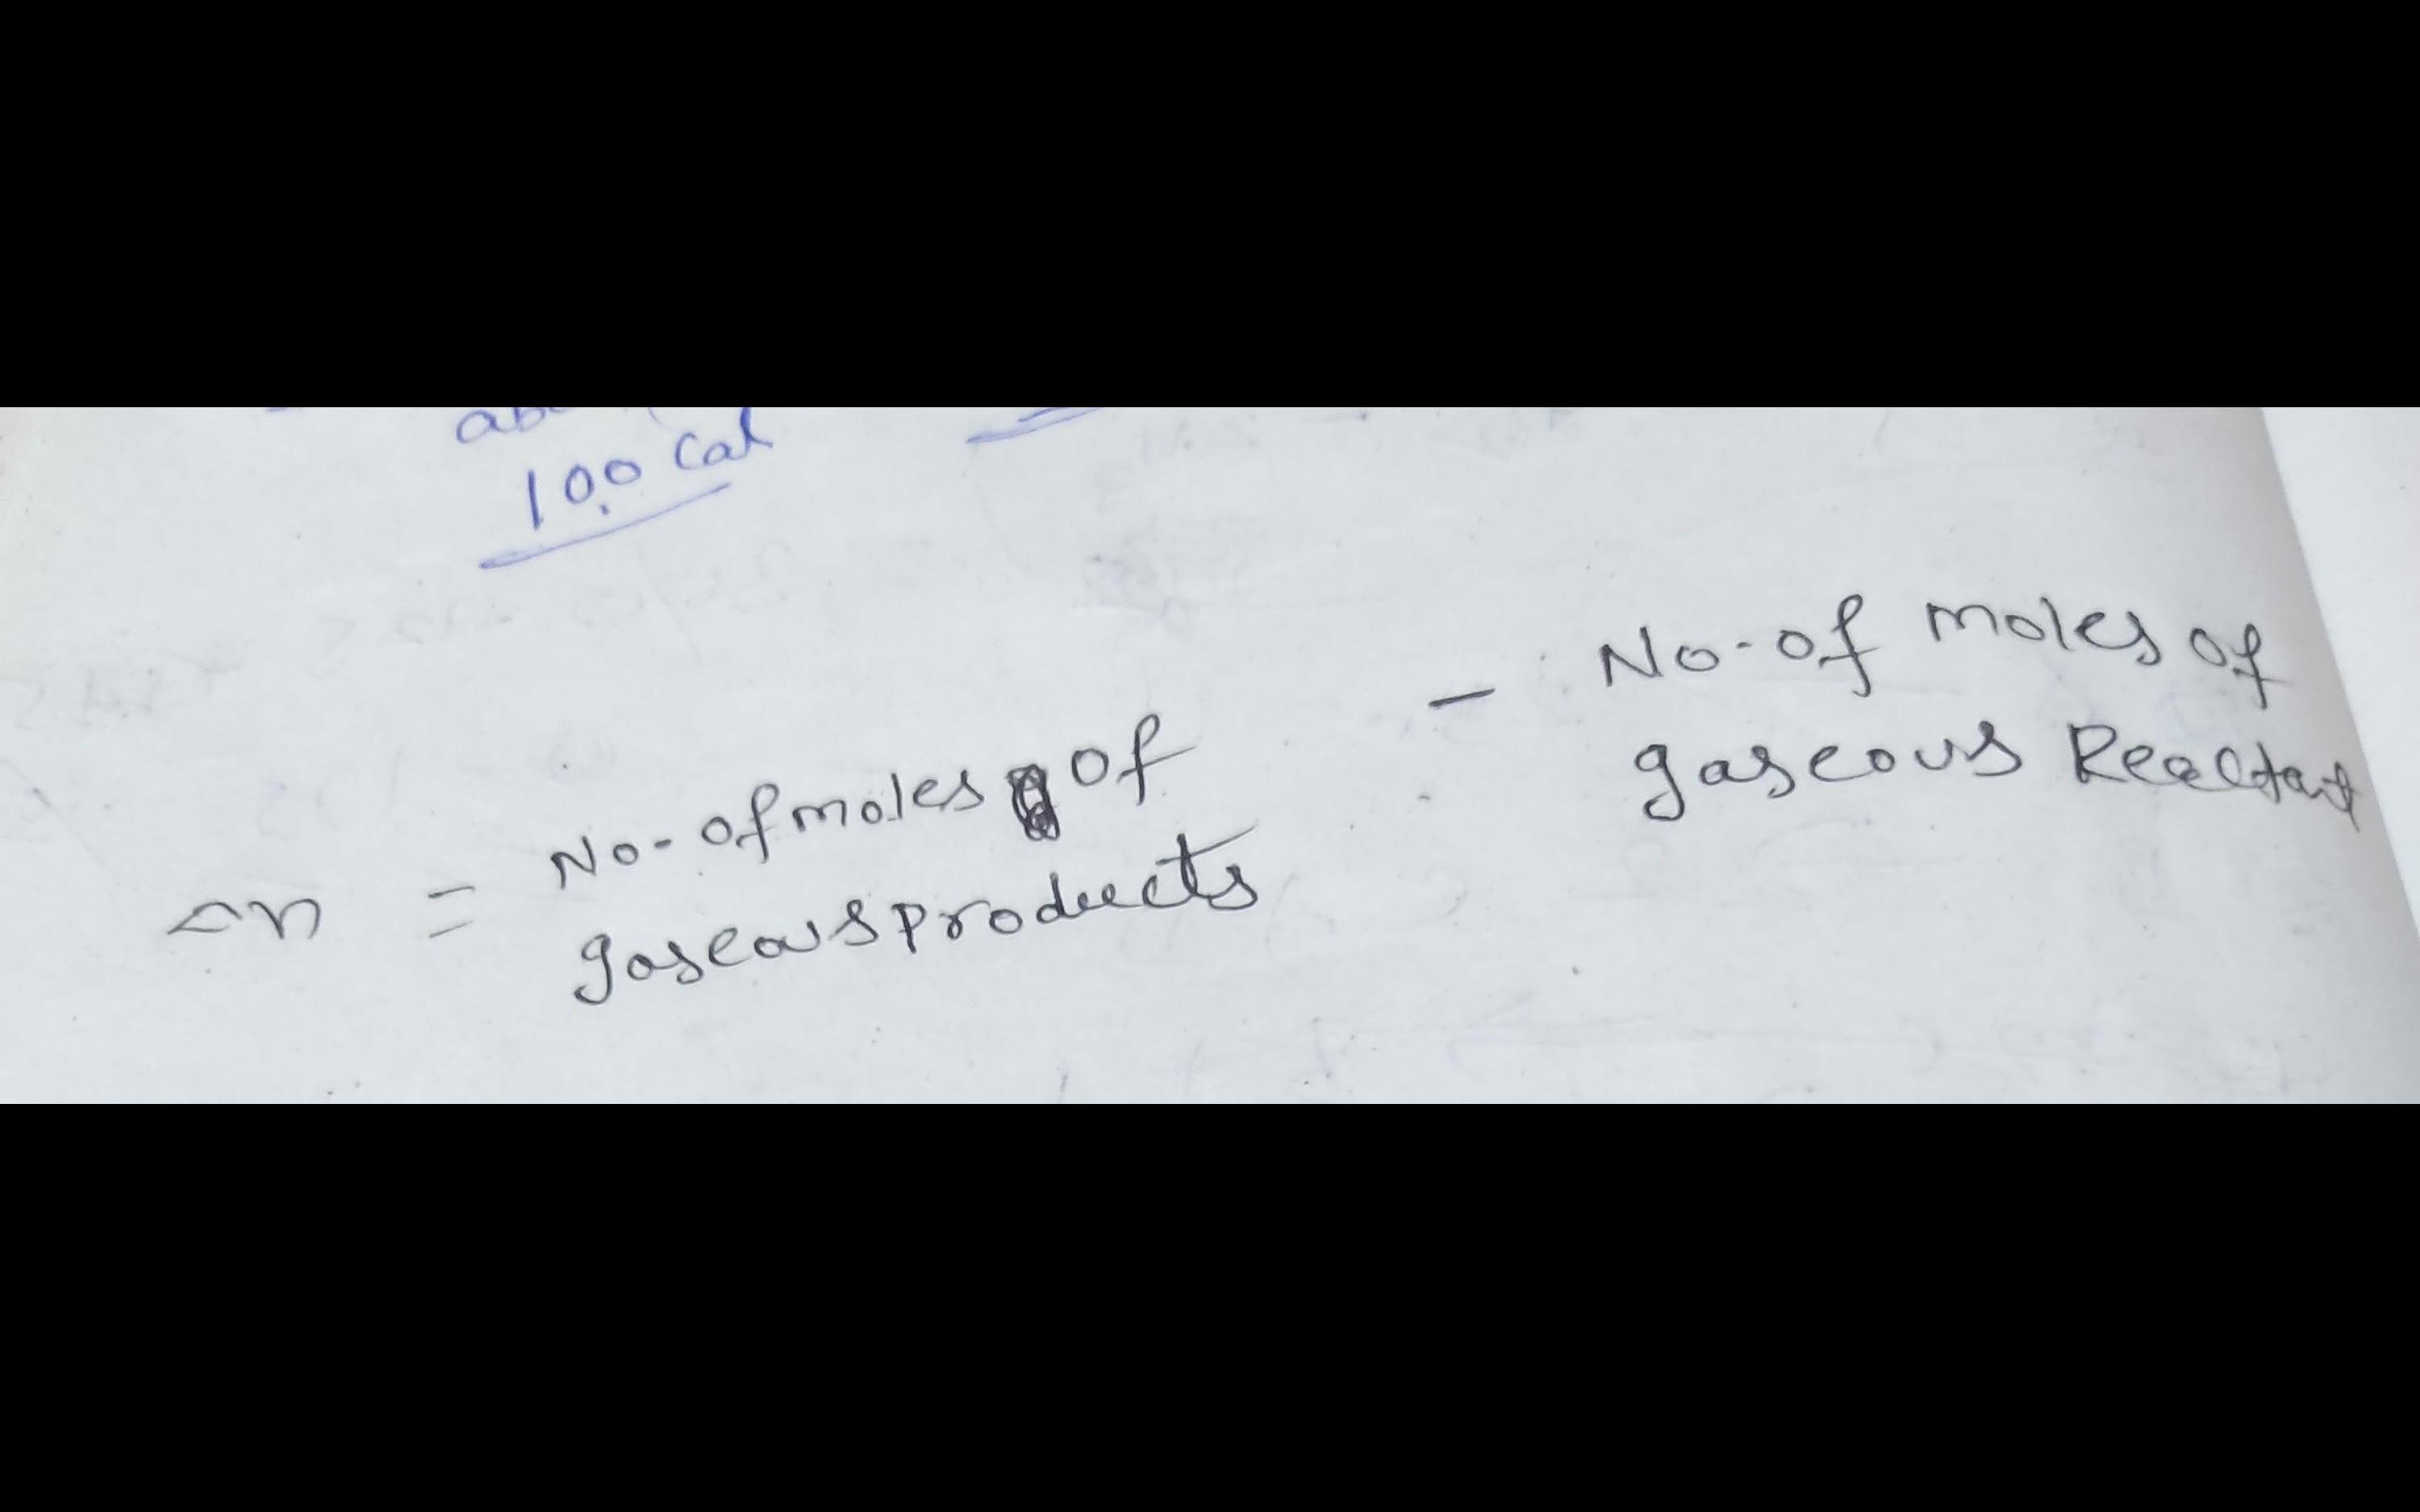 10.0 Cal
No. of moles of
- No. of moles of
gaseous Reactant
Δn =
gaseous products